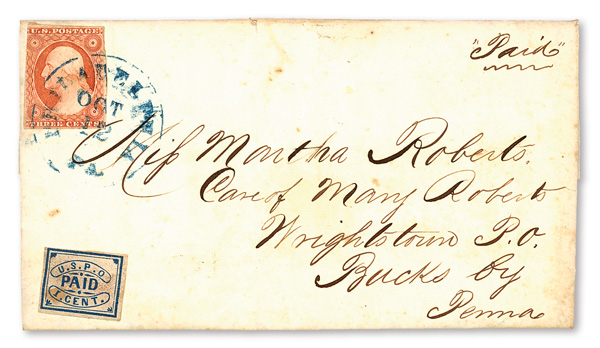 U.S. POSTAGE
THREE CENTS
PHILADELPHIA Pa
OCT
"Paid"
Miſs Martha Roberts.
Care of Mary Roberts
Wrightstown P.O.
Bucks Cy
Penna
U.S.P.O
PAID
1.CENT.